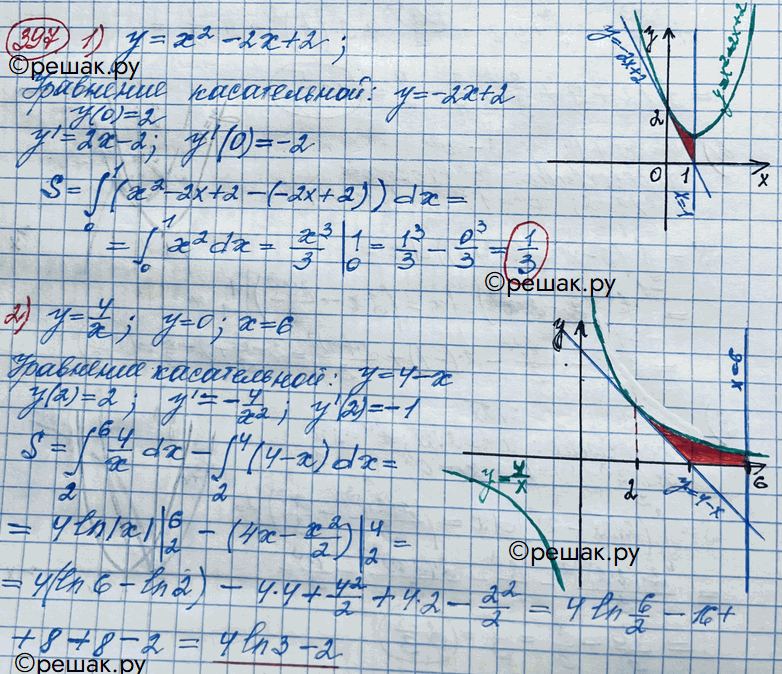 397 1) y = x² - 2x + 2;
©решак.ру
Уравнение касательной: y = -2x+2
y(0) = 2
y' = 2x - 2; y'(0) = -2
S = ∫₀¹ (x² - 2x + 2 - (-2x + 2)) dx =
= ∫₀¹ x² dx = x³/3 |₀¹ = 1³/3 - 0³/3 = 1/3
©решак.ру
y
y=-2x+2
y=x²-2x+2
2
0 1 x
x=1
2) y = 4/x; y = 0; x = 6
Уравнение касательной: y = 4-x
y(2) = 2; y' = -4/x²; y'(2) = -1
S = ∫₂⁶ 4/x dx - ∫₂⁴ (4-x) dx =
= 4 ln|x| |₂⁶ - (4x - x²/2) |₂⁴ =
= 4(ln 6 - ln 2) - 4·4 + 4²/2 + 4·2 - 2²/2 = 4 ln 6/2 - 16 +
+ 8 + 8 - 2 = 4 ln 3 - 2
©решак.ру
y
x=6
y=4/x
2
y=4-x
6
©решак.ру